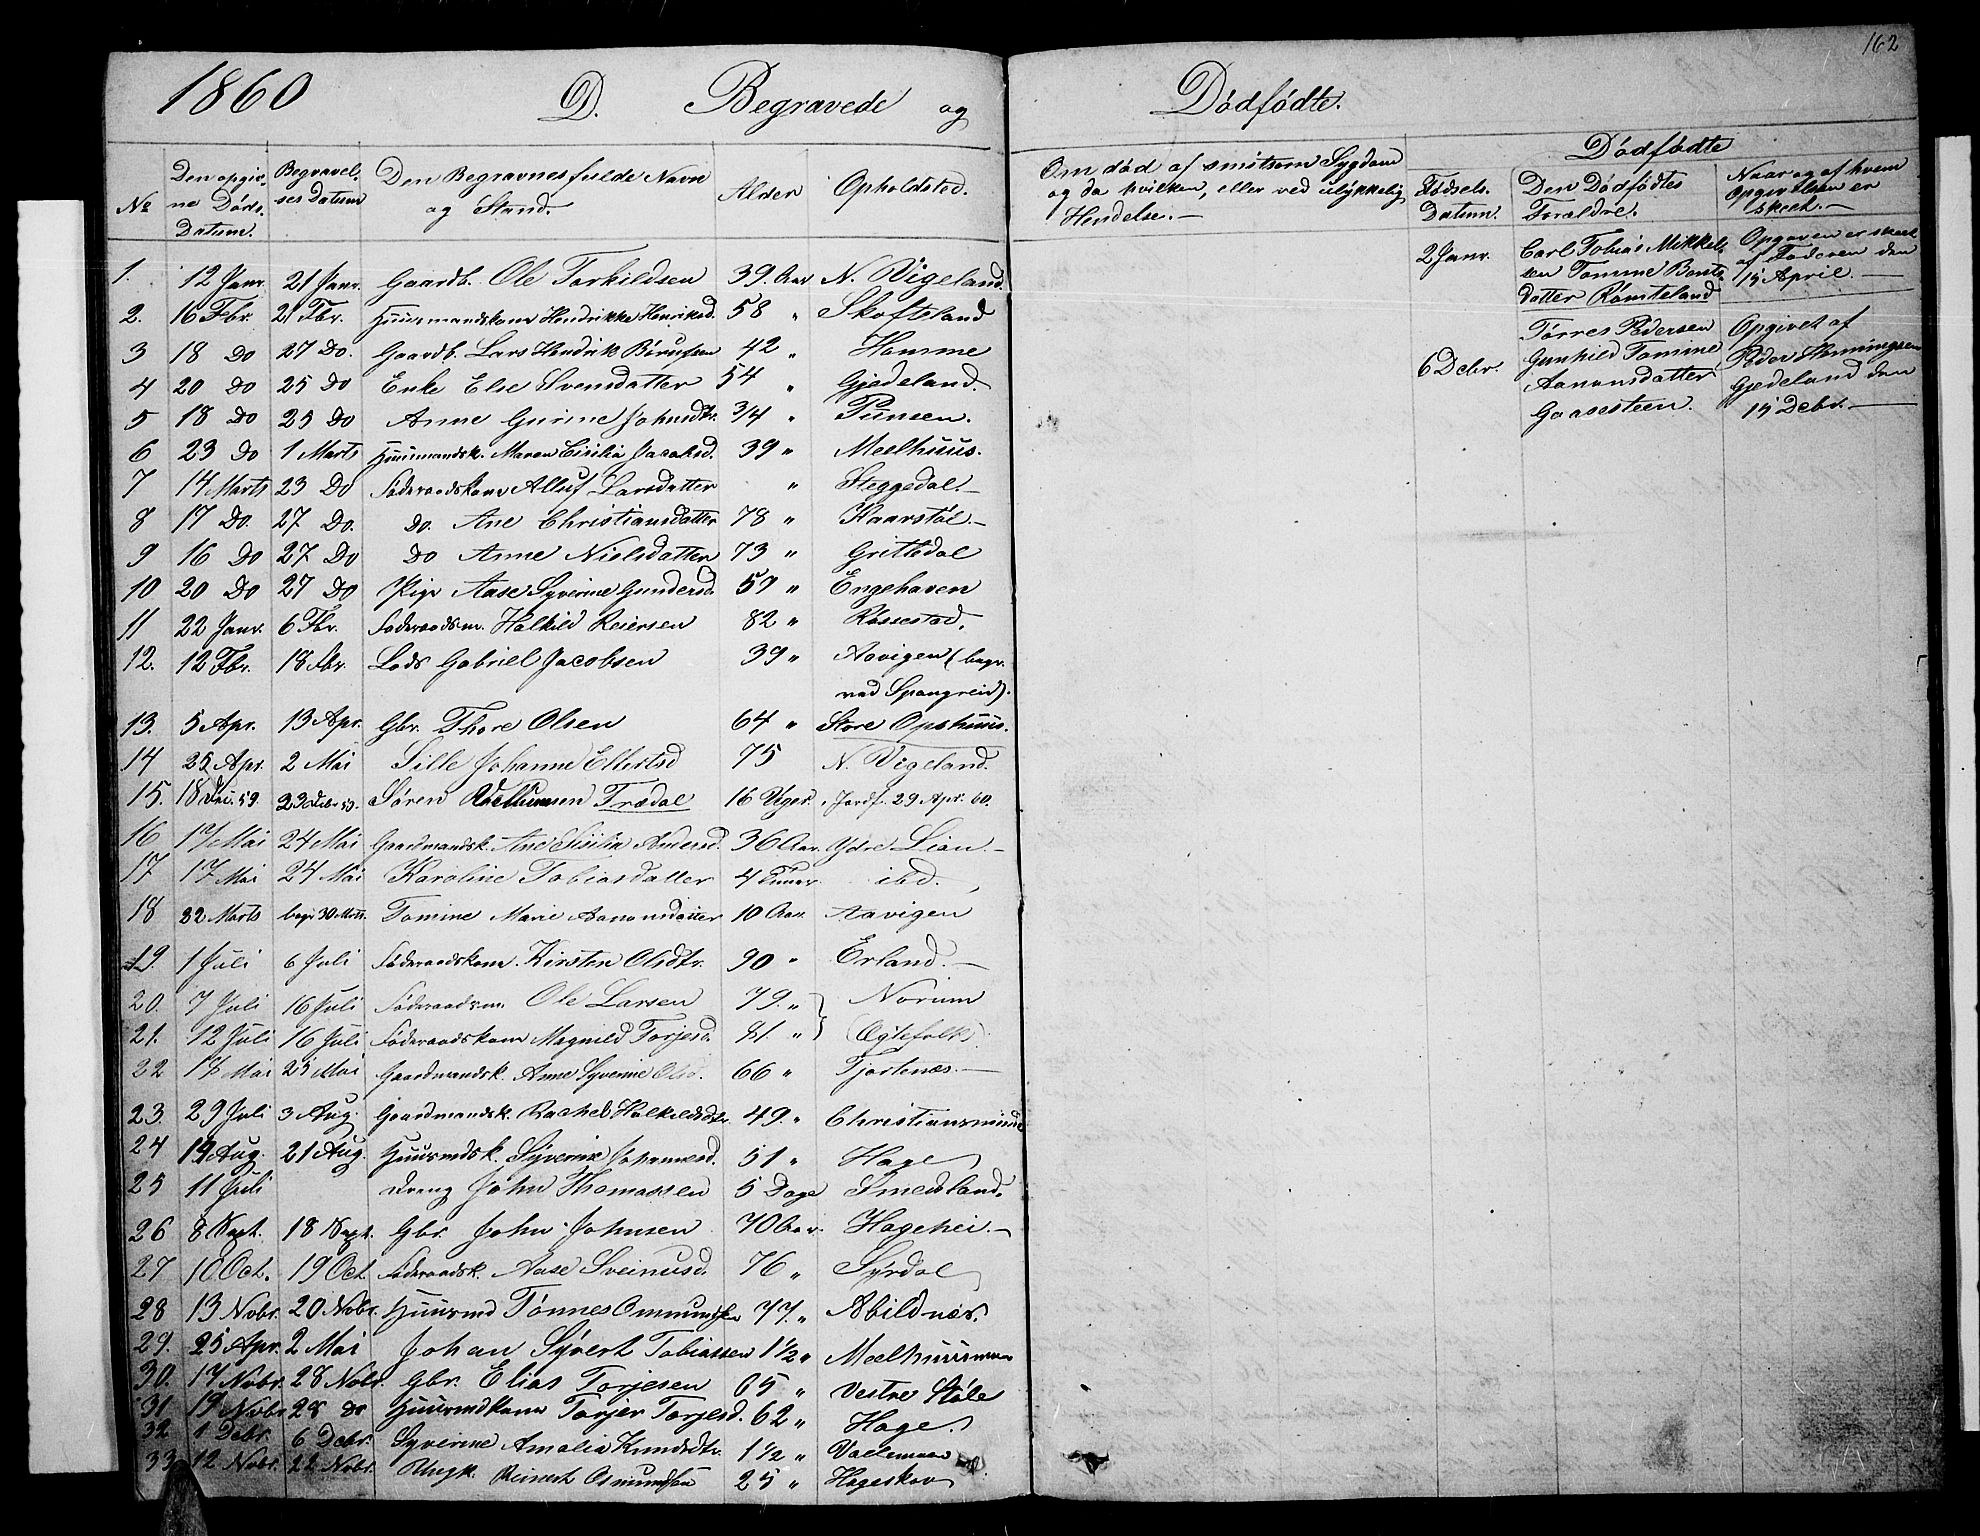 162
1860 D. Begravede og Dødfødte.
№ Den opgivne Døds-Datum. Begravelses Datum Den Begravnes fulde Navn og Stand. Alder Opholdsted.
1. 12 Janr. 21 Janr. Gaardb. Ole Torkildsen 39. Aar N. Vigeland.
2. 16 Fbr. 21 Fbr. Huusmandskone Hendrikke Henriksd. 58 " Skofteland
3 18 Do 27 Do. Gaardb. Lars Hendrik 42 " Homme
4 20 Do 25 Do Enke Else Svensdatter 54 " Gjedeland.
5 18 Do 25 Do Anne Gurine Johnsdtr. 3/4 " Tunsen.
6 23 Do 1 Marts Huusmandsk. Maren Cisilia Jacobsd. 39 " Meelhuus.
7 14 Marts 23 Do Føderaadskone Larsdatter " Steggedal.
8 17 Do. 27 Do. Do. Ane Christiansdatter 78 " Kaarstøl.
9 16 Do 27 Do Do Anne Nielsdatter 73 " Grittedal
10 20 Do 27 Do Pige Aase Syverine Gundersd. 59 " Engehaven
11 22 Janr. 6 Fbr. Føderaadsm. Halkild Reiersen 82 " Røssestad.
12. 12 Fbr. 18 Fbr. Lods Gabriel Jacobsen 39 " Aavigen (begr.
ved Spangreid).
13. 5 Apr. 13 Apr. Gbr. Thore Olsen 64 " Store Opshuus.
14 25 Apr. 2 Mai Sille Johanne Ellertsd 75 N. Vigeland.
15. 18 59. 23 Debr 59. Søren Trædal 16 Uger. Jordf. 29 Apr. 60.
16 17 Mai 24 Mai Gaardmandsk. Ane Sisilia Andersd. 36 Aar. Ydre Lian
17 17 Mai 24 Mai Karoline Tobiasdatter 4 Timer ibd.
18 22 Marts begr 30 Mts. Tomine Marie Aanonsdatter 10 Aar. Aavigen
19. 1 Juli 6 Juli Føderaadskone. Kirsten Olsdtr. 90 " Erland.
20. 7 Juli 16 Juli Føderaadsm. Ole Larsen 79. " Norum
21. 12 Juli 16 Juli Føderaadskone Magnild Torjesd. 81. " (Ægtefolk)
22 17 Mai 25 Mai Gaardmandsk. Anne Syverine Olsd. 66 " Tjortenæs.
23. 29 Juli 3 Aug. Gaardmandsk. Rachel Halkildsdtr. 49. " Christiansminde
24 19 Aug. 21 Aug. Huusmdsk. Syverine Johannesd. 51 " Hage
25 11 Juli Dreng John Thomassen 5 Dage Smedsland.
26 8 Sept. 18 Sept. Gbr. John Johnsen 70 Aar. Hagehei.
27 10 Oct. 19 Oct. Føderaadsk. Aase Sveinusd. 76 " Syrdal
28 13 Nobr. 20 Nobr. Huusmd Tønnes Ommundsen 77. " Abildnæs.
29. 25 Apr. 2 Mai Johan Syvert Tobiassen 1 1/2 " Meelhuusmoen
30. 17 Nobr. 28 Nobr. Gbr. Elias Torjesen 65 " Vestre Støle
31 19 Nobr 28 do Huusmdkone Torjer Torjesd. 62 " Hage.
32 1 Debr. 6 Debr. Syverine Amalie Knudsdtr. 1 1/2 "
33 12 Nobr. 22 Nobr. Ungk. Reinert Osmundsen 25 " Hageskov
Om død af smitsom Sygdom
og da hvilken, eller ved ulykkelig
Hendelse.
Dødfødte
Fødsels-Datum. Den Dødfødtes Forældre. Naar og af hvem Opgivelsen er skeet.
2 Janr. Carl Tobias Mikkelsen Tomine Bentsdatter Rømteland Opgaven er skeet af Faderen den 15 April.
6 Debr. Tørres Pedersen Gunhild Tomine Aanonsdatter Gaasesteen. Opgivet af Peder Henningsen Gjedeland den 15 Debr.